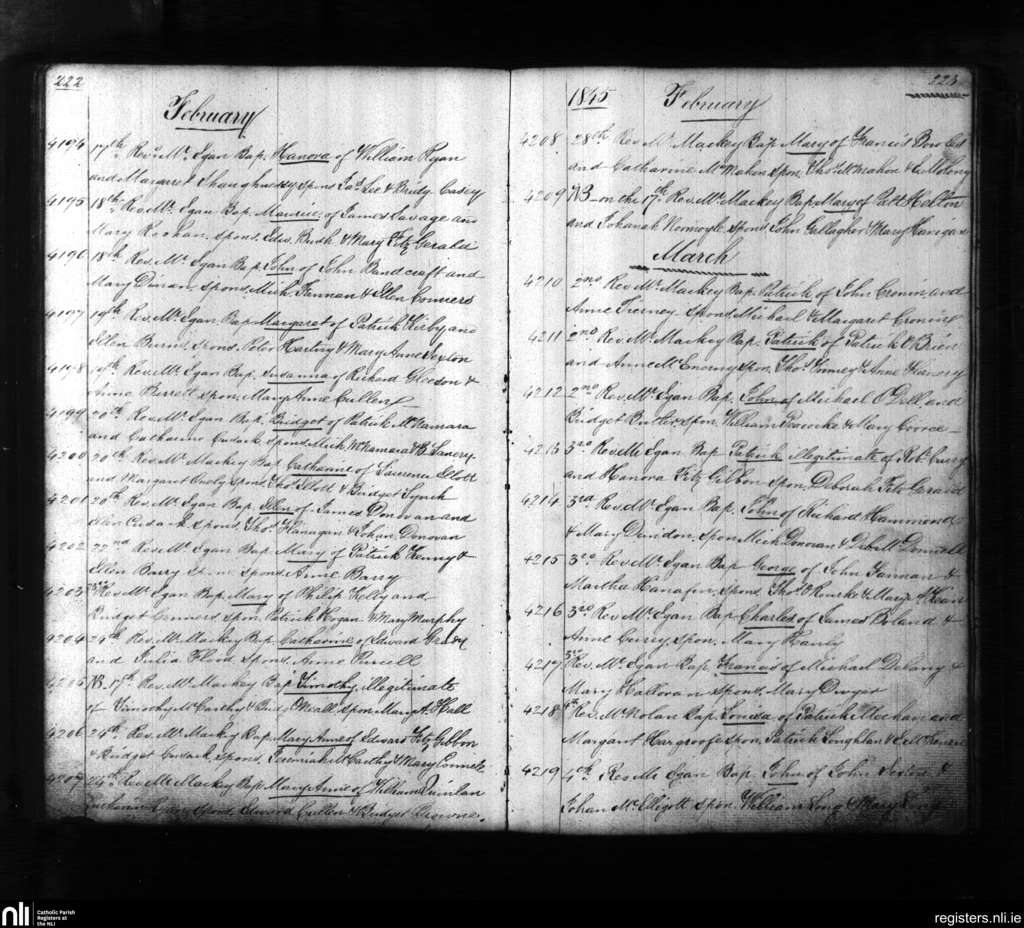 222
February
4194 17th Revd. Mr. Egan Bap. Hanora of William Ryan
and Margaret Shaughnessy spons Jas. Lee & Bridy Casey
4195 18th Rev Mr. Egan Bap. Maurice of James Savage and
Mary Reehan. spons. Edw. Bush & Mary Fitz Gerald
4196 18th Rev. Mr. Egan Bap John of John and
Mary Dinan. spons. Mich. & Ellen Conners
4197 19th Rev. Mr. Egan Bap Margaret of Patrick Kirby and
Ellen Burns. spons. Peter & Mary Anne Sexton
4198 19th Rev. Mr. Egan Bap. Susanna of Richard Gleeson &
Anne spon. Mary Anne Cullen
4199 20th Rev Mr. Egan Bap. Bridget of Patrick McNamara
and Catharine Cusack spons Mich. McNamara & B.
4200 20th Rev. Mr. Mackey Bap Catharine of Laurence
and Margaret spons. Thos. & Bridget Lynch
4201 20th Rev. Mr. Egan Bap. Ellen of James Donovan and
Ellen Cusack spons. Thos. Flanagan & Johan. Donovan
4202 22nd Rev Mr. Egan Bap. Mary of Patrick Kenny &
Ellen Barry spons Anne Barry
4203 Rev Mr. Egan Bap. Mary of Philip Kelly and
Bridget Conners spon. Patrick Hogan & Mary Murphy
4204 24th Rev. Mr. Mackey Bap Catharine of Edward Grady
and Julia Flood spons. Anne Purcell
4205 NB. 17th Rev. Mr. Mackey Bap Timothy, illegitimate
of Timothy McCarthy & Brid. ONeill. spon Mary A. Hall
4206 24th. Rev. Mr. Mackey Bap. Mary Anne of Edward Fitz Gibbon
& Bridget Cusack. spons. Jeremiah McCarthy & Mary Connell
4207 24th. Rev Mr Mackey Bap. Mary Anne of William Quinlan
Catharine spons. Edward Cullen & Bridget
1845 February 223
4208 28th Rev. Mr Mackey Bap Mary of Francis
and Catharine McMahon spon. Thos. McMahon &
4209 NB on the 17th Rev. Mr. Mackey Bap Mary of Patt Helton
and Johanah Normoyle spons John Gallagher & Mary
March
4210 2nd Rev Mr. Mackey Bap. Patrick of John Cronin and
Anne Tierney. spons. Michael & Margaret Cronin
4211 2nd Rev. Mr. Mackey Bap. Patrick of Patrick O'Brien
and Anne McEnerny spon. Thos. & Anne
4212 2nd Rev. Mr. Egan Bap. John of Michael O'Dell and
Bridget Butler. spon. William Peacocke & Mary
4213 3rd Rev Mr Egan Bap. Patrick illegitimate of Robt.
and Hanora Fitz Gibbon spon. Deborah Fitz Gerald
4214 3rd Rev Mr. Egan Bap. John of Richard Hammond
& Mary Dundon. spon Mich Donovan &
4215 3rd Rev Mr. Egan Bap George of John Hannan &
Martha Hanafin. spons. Thos. Rourke & Mary
4216 3rd Rev. Mr. Egan Bap Charles of James Boland &
Anne Curry. spon. Mary
4217 3rd Rev. Mr. Egan Bap. Francis of Michael Delany &
Mary Halloran spons. Mary Dwyer
4218 4th Rev. Mr Nolan Bap. Louisa of Patrick Meehan and
Margaret Hargroofe spon. Patrick Loughlan &
4219 4th. Rev Mr Egan Bap. John of John Sexton &
Johan McElligott spon. William Long & Mary
nli
Catholic Parish
Registers at
the NLI
registers.nli.ie